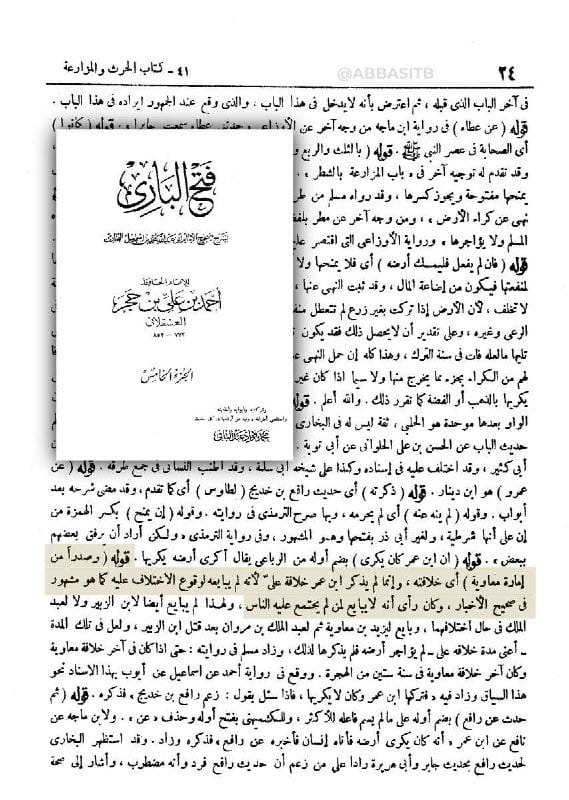 ٢٤
@ABBASITB
٤١ - كتاب الحرث والمزارعة
فى آخر الباب الذى قبله ، ثم اعترض بأنه لايدخل فى هذا الباب ، والذى وقع عند الجمهور ايراده فى هذا الباب .
قوله ( عن عطاء ) فى رواية ابن ماجه من وجه آخر عن الأوزاعى
أى الصحابة فى عصر النبى ﷺ . قوله ( بالثلث والربع
وقد تقدم له توجيه آخر فى « باب المزارعة بالشطر » .
يمنحها مفتوحة ويجوز كسرها ، وقد رواه مسلم من طر
نهى عن كراء الأرض » ، ومن وجه آخر عن مطر بلفظ
المسلم ولا يؤاجرها » ورواية الأوزاعى التى اقتصر عليه
قوله ( فان لم يفعل فليمسك أرضه ) أى فلا يمنحها ولا
لمنفعتها فيكون من إضاعة المال ، وقد ثبت النهى عنها ،
لاتخلف ، لأن الأرض إذا تركت بغير زرع لم تتعطل منفع
الرعى وغيره ، وعلى تقدير أن لايحصل ذلك فقد يكون
تليها مالعله فات فى سنة الترك ، وهذا كله إن حمل النهى عن
لهم من الكراء بجزء مما يخرج منها ولا سيما اذا كان غير
يكريها بالذهب أو الفضة كما تقرر ذلك . والله أعلم .
الواو بعدها موحدة هو الحلبى ، ثقة ليس له فى البخارى
حديث الباب عن الحسن بن على الحلوانى عن أبى توبة .
أبى كثير ، وقد اختلف عليه فى إسناده وكذا على شيخه أبى سلمة ، وقد اطنب النسائى فى جمع طرقه . قوله ( عن
عمرو ) هو ابن دينار . قوله ( ذكرته ) أى حديث رافع بن خديج ( لطاوس ) أى كما تقدم ، وقد مضى شرحه بعد
أبواب . وقوله ( لم ينه عنه ) أى لم يحرمه ، وبها صرح الترمذى فى روايته . وقوله ( إن يمنح ) بكسر الهمزة من
إن على أنها شرطية ، ولغير أبى ذر بفتحها وهو المشهور ، وفى رواية الترمذى « ولكن أراد أن يرفق بعضهم
ببعض » . قوله ( أن ابن عمر كان يكرى ) بضم أوله من الرباعى يقال أكرى أرضه يكريها . قوله ( وصدراً من
إمارة معاوية ) أى خلافته ، وإنما لم يذكر ابن عمر خلافة على لأنه لم يبايعه لوقوع الاختلاف عليه كما هو مشهور
فى صحيح الأخبار ، وكان رأى أنه لايبايع لمن لم يجتمع عليه الناس ، ولهذا لم يبايع أيضا لابن الزبير ولا لعبد
الملك فى حال اختلافهما ، وبايع ليزيد بن معاوية ثم لعبد الملك بن مروان بعد قتل ابن الزبير ، ولعل فى تلك المدة
ـ أعنى مدة خلافة على ـ لم يؤاجر أرضه فلم يذكرها لذلك ، وزاد مسلم فى روايته : حتى اذا كان فى آخر خلافة معاوية
وكان آخر خلافة معاوية فى سنة ستين من الهجرة . ووقع فى رواية أحمد عن اسماعيل عن أيوب بهذا الاسناد نحو
هذا السياق وزاد فيه « فتركها ابن عمر وكان لايكريها ، فاذا سئل يقول : زعم رافع بن خديج » فذكره . قوله ( ثم
حدث عن رافع ) بضم أوله على مالم يسم فاعله للأكثر ، وللكشميهنى بفتح أوله وحذف « عن » . ولابن ماجه عن
نافع عن ابن عمر « أنه كان يكرى أرضه فأتاه إنسان فأخبره عن رافع » فذكره وزاد . وقد استظهر البخارى
لحديث رافع بحديث جابر وأبى هريرة رادا على من زعم أن حديث رافع فرد وأنه مضطرب ، وأشار إلى صحة
فتح البارى
للإمام الحافظ
أحمد بن على بن حجر
العسقلانى
٧٧٣ - ٨٥٢
الجزء الخامس
محمد فؤاد عبد الباقى